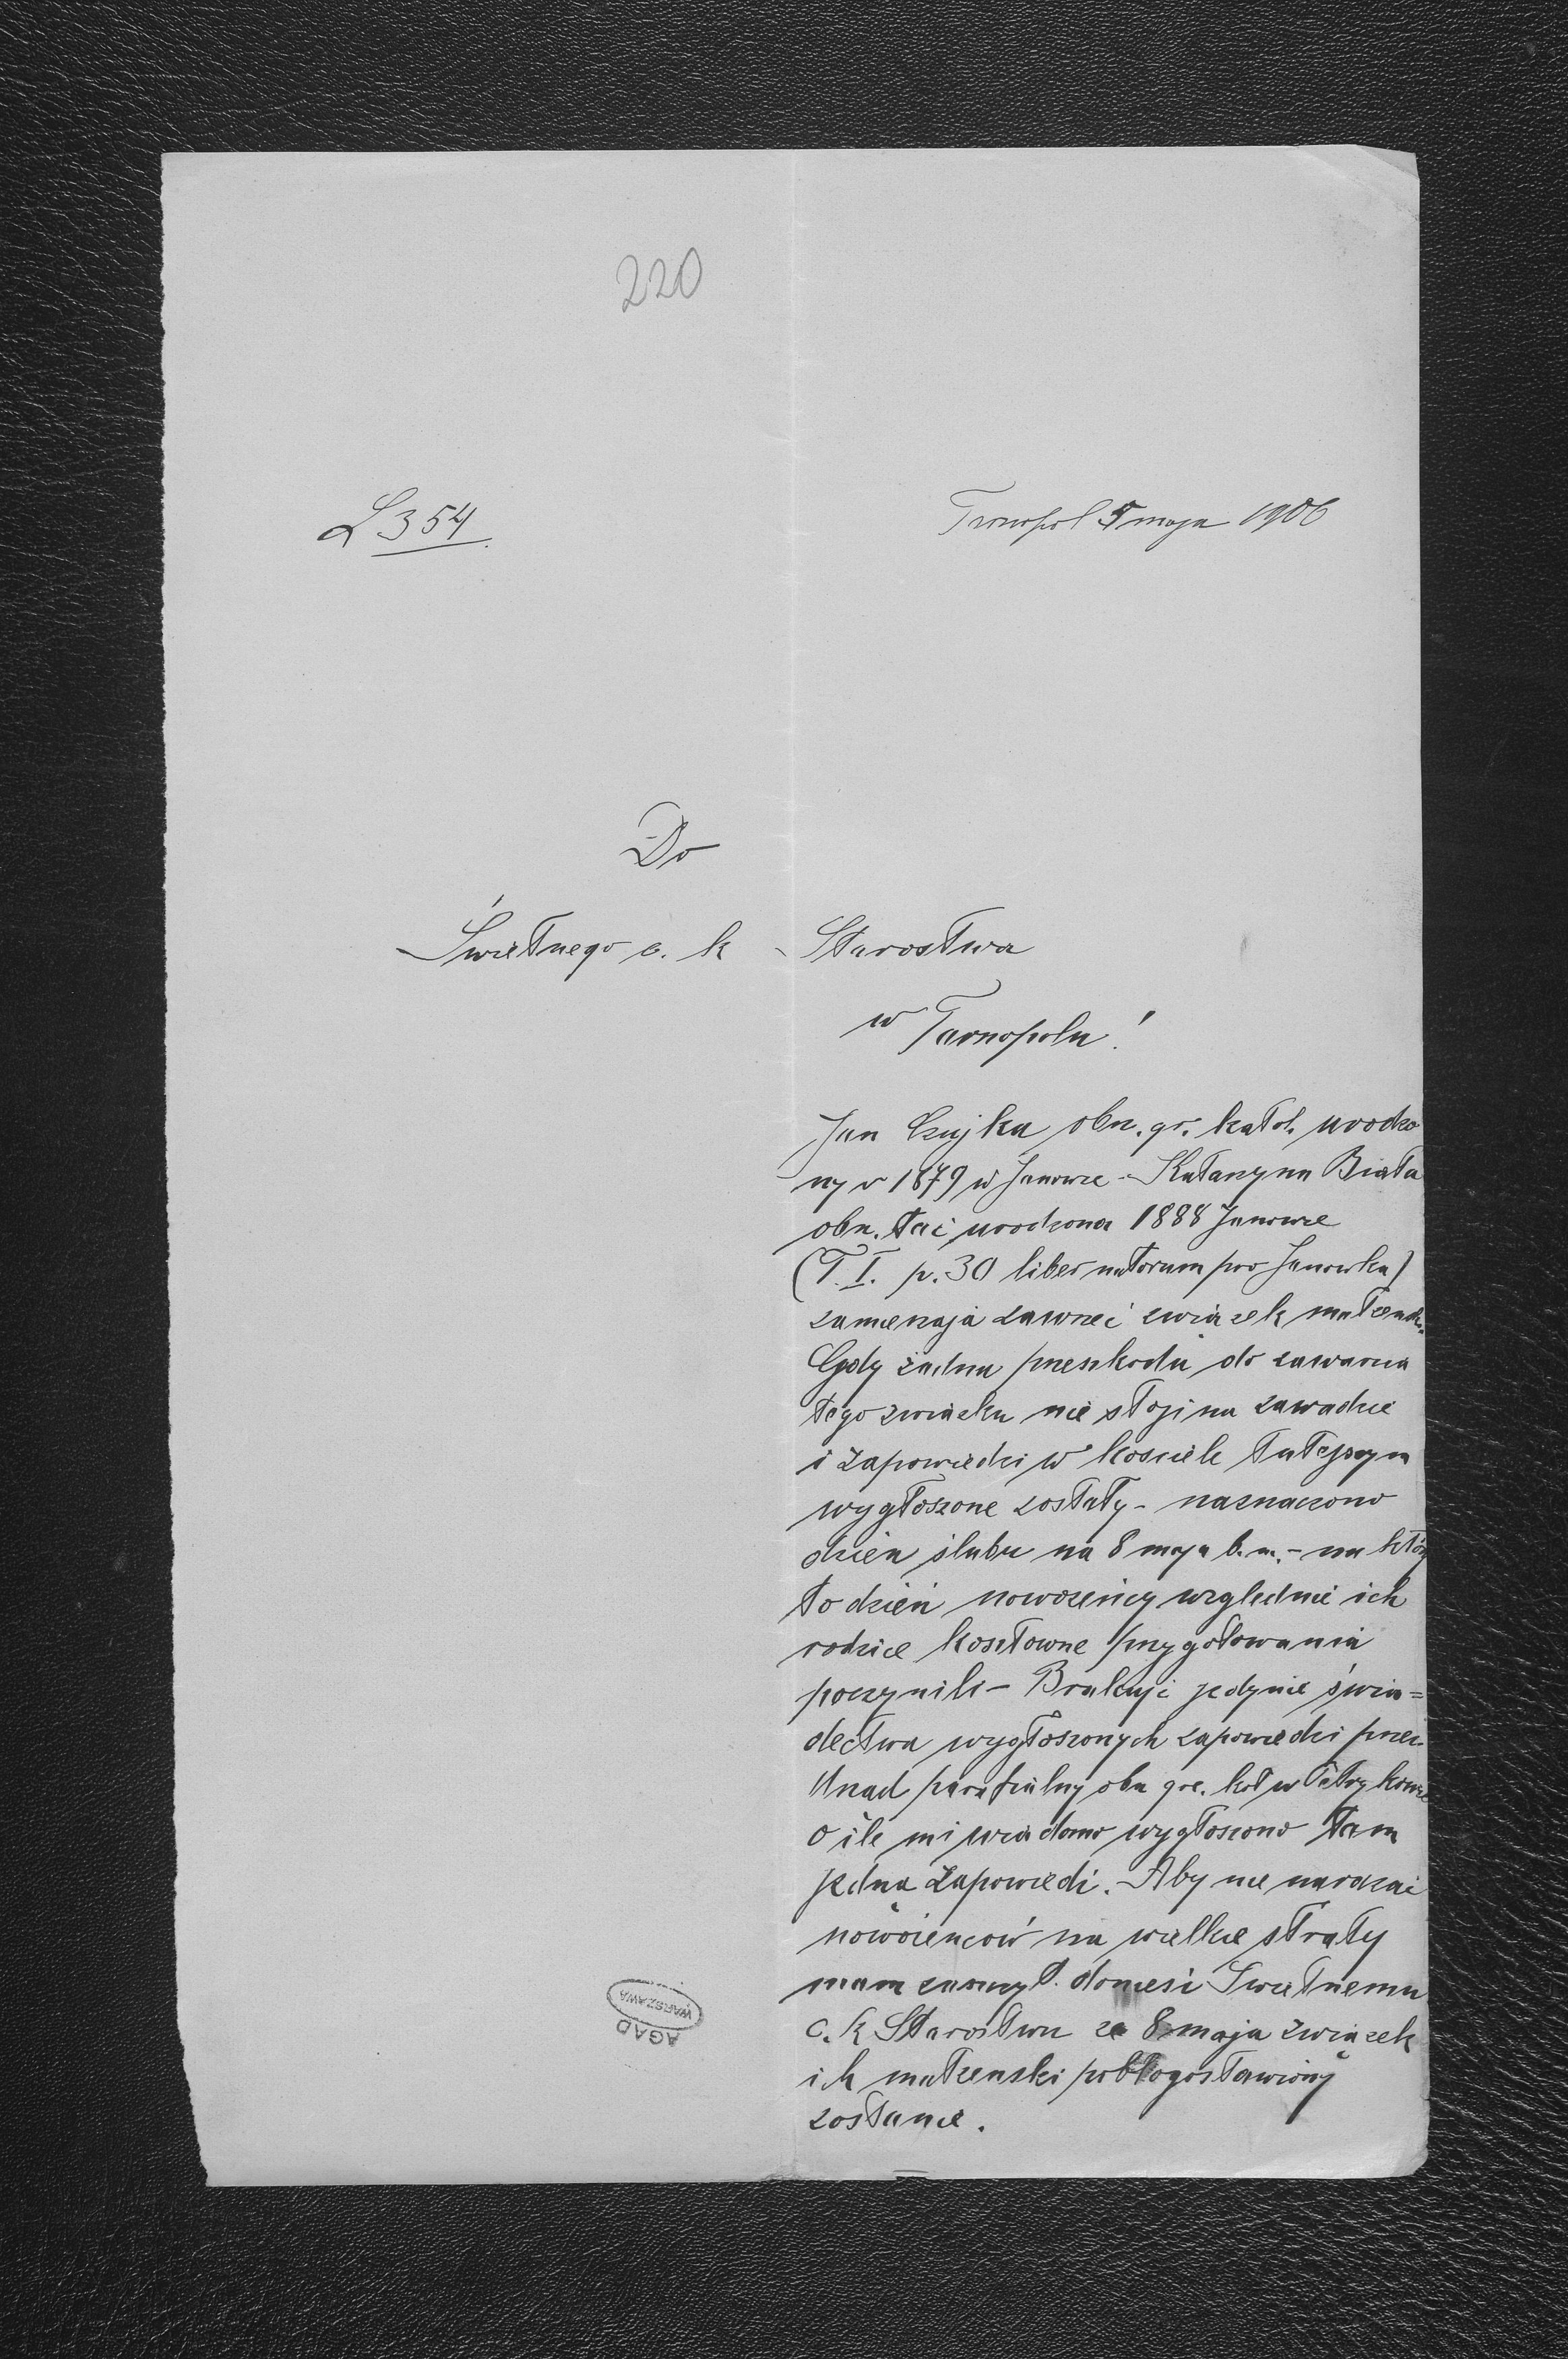 220
L 354
Tarnopol 5 maja 1906
Do
Świetnego c. k. Starostwa
w Tarnopolu!
Jan Czujka obrz. gr. katol. urodzo
ny w 1879 w Janowce - Katarzyna Biała
obrz. łać urodzona 1888 Janowce
(T. I. p. 30 liber natorum pro Janowka)
zamierzają zawrzeć związek małżeńsk.
Gdy żadna przeszkoda do zawarcia
tego związku nie stoji na zawadzie
i zapowiedzi w kościele tutejszym
wygłoszone zostały - naznaczono
dzień ślubu na 8 maja b.m. - na który
to dzień nowożeńcy względnie ich
rodzice kosztowne przygotowania
poczynili - Brakuje jedynie świa=
dectwa wygłoszonych zapowiedzi przez
Urząd parafialny obrz gre. kat w
o ile mi wiadomo wygłoszono tam
jedną zapowiedź. Aby nie narażać
nowożeńców na wielkie straty
mam zaszczyt donieść Świetnemu
c. k Starostwu że 8 maja związek
ich małżeński pobłogosławiony
zostanie.
AGAD
WARSZAWA